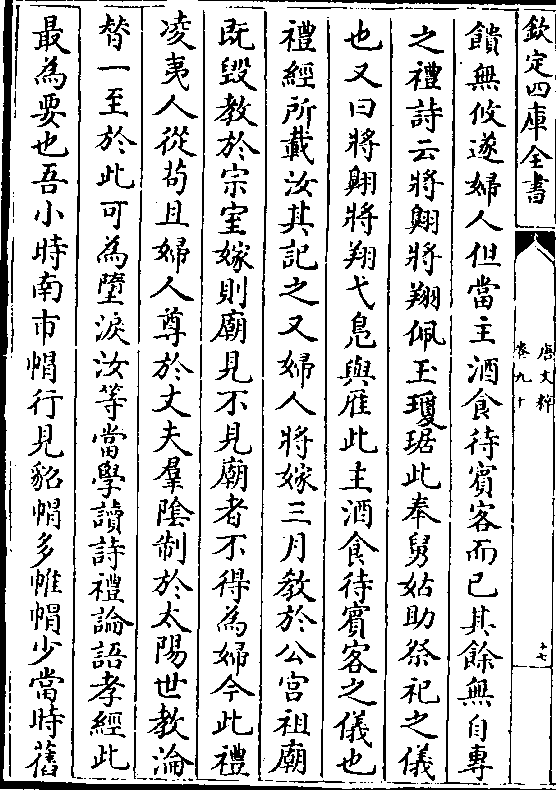 欽定四庫全書
唐文粹
卷九十
十七
饋無攸遂婦人但當主酒食待賓客而已其餘無自專
之禮詩云將翺將翔佩玉瓊琚此奉舅姑助祭祀之儀
也又曰將翺將翔弋鳧與雁此主酒食待賓客之儀也
禮經所載汝其記之又婦人將嫁三月教於公宫祖廟
既毁教於宗室嫁則廟見不見廟者不得為婦今此禮
凌夷人從茍且婦人尊於丈夫羣隂制於太陽世教淪
替一至於此可為墮淚汝等當學讀詩禮論語孝經此
最為要也吾小時南市帽行見貂帽多帷帽少當時舊